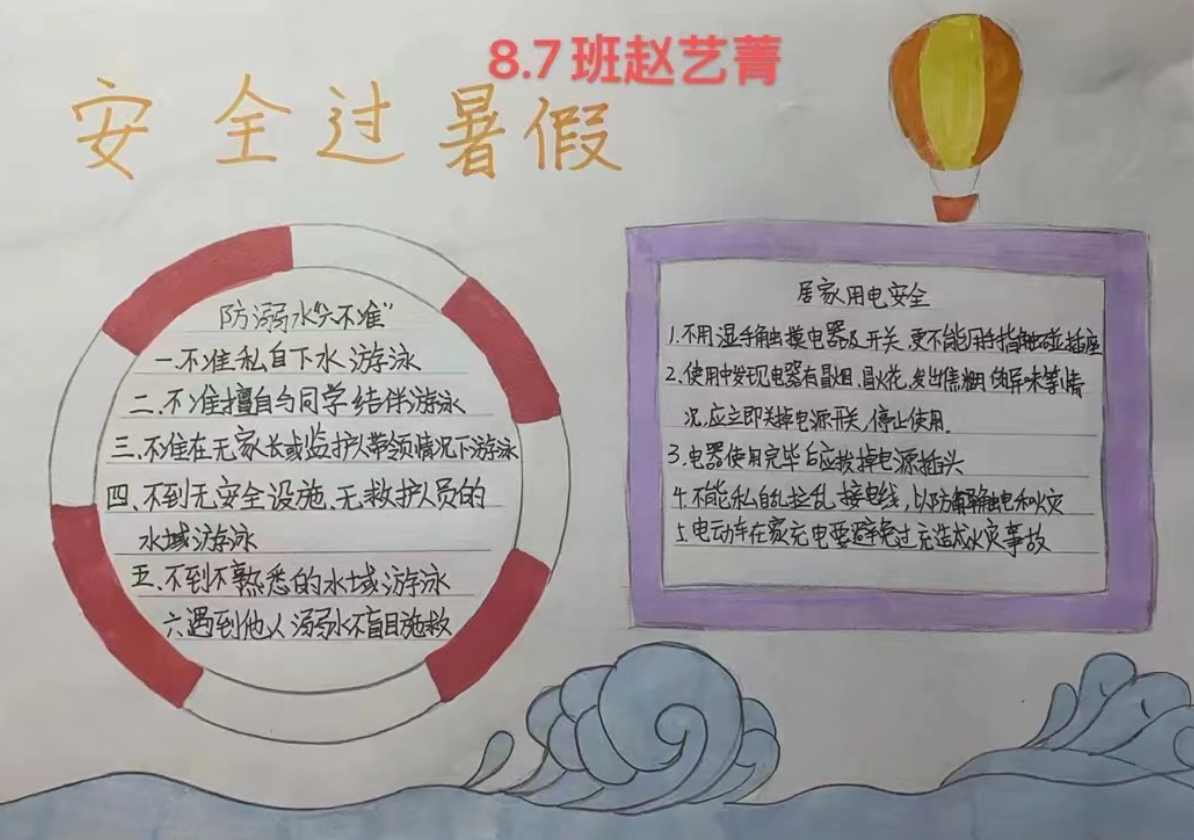 8.7班赵艺菁
安全过暑假
防溺水“六不准”
一.不准私自下水游泳
二.不准擅自与同学结伴游泳
三.不准在无家长或监护人带领情况下游泳
四.不到无安全设施、无救护人员的
水域游泳
五.不到不熟悉的水域游泳
六遇到他人溺水不盲目施救
居家用电安全
1.不用湿手触摸电器及开关,更不能用手指触碰插座
2.使用中发现电器有冒烟、冒火花,发出焦糊的异味等情
况,应立即关掉电源开关,停止使用.
3.电器使用完毕后应拨掉电源插头
4.不能私自乱拉乱接电线,以防触电和火灾
5.电动车在家充电要避免过充造成火灾事故